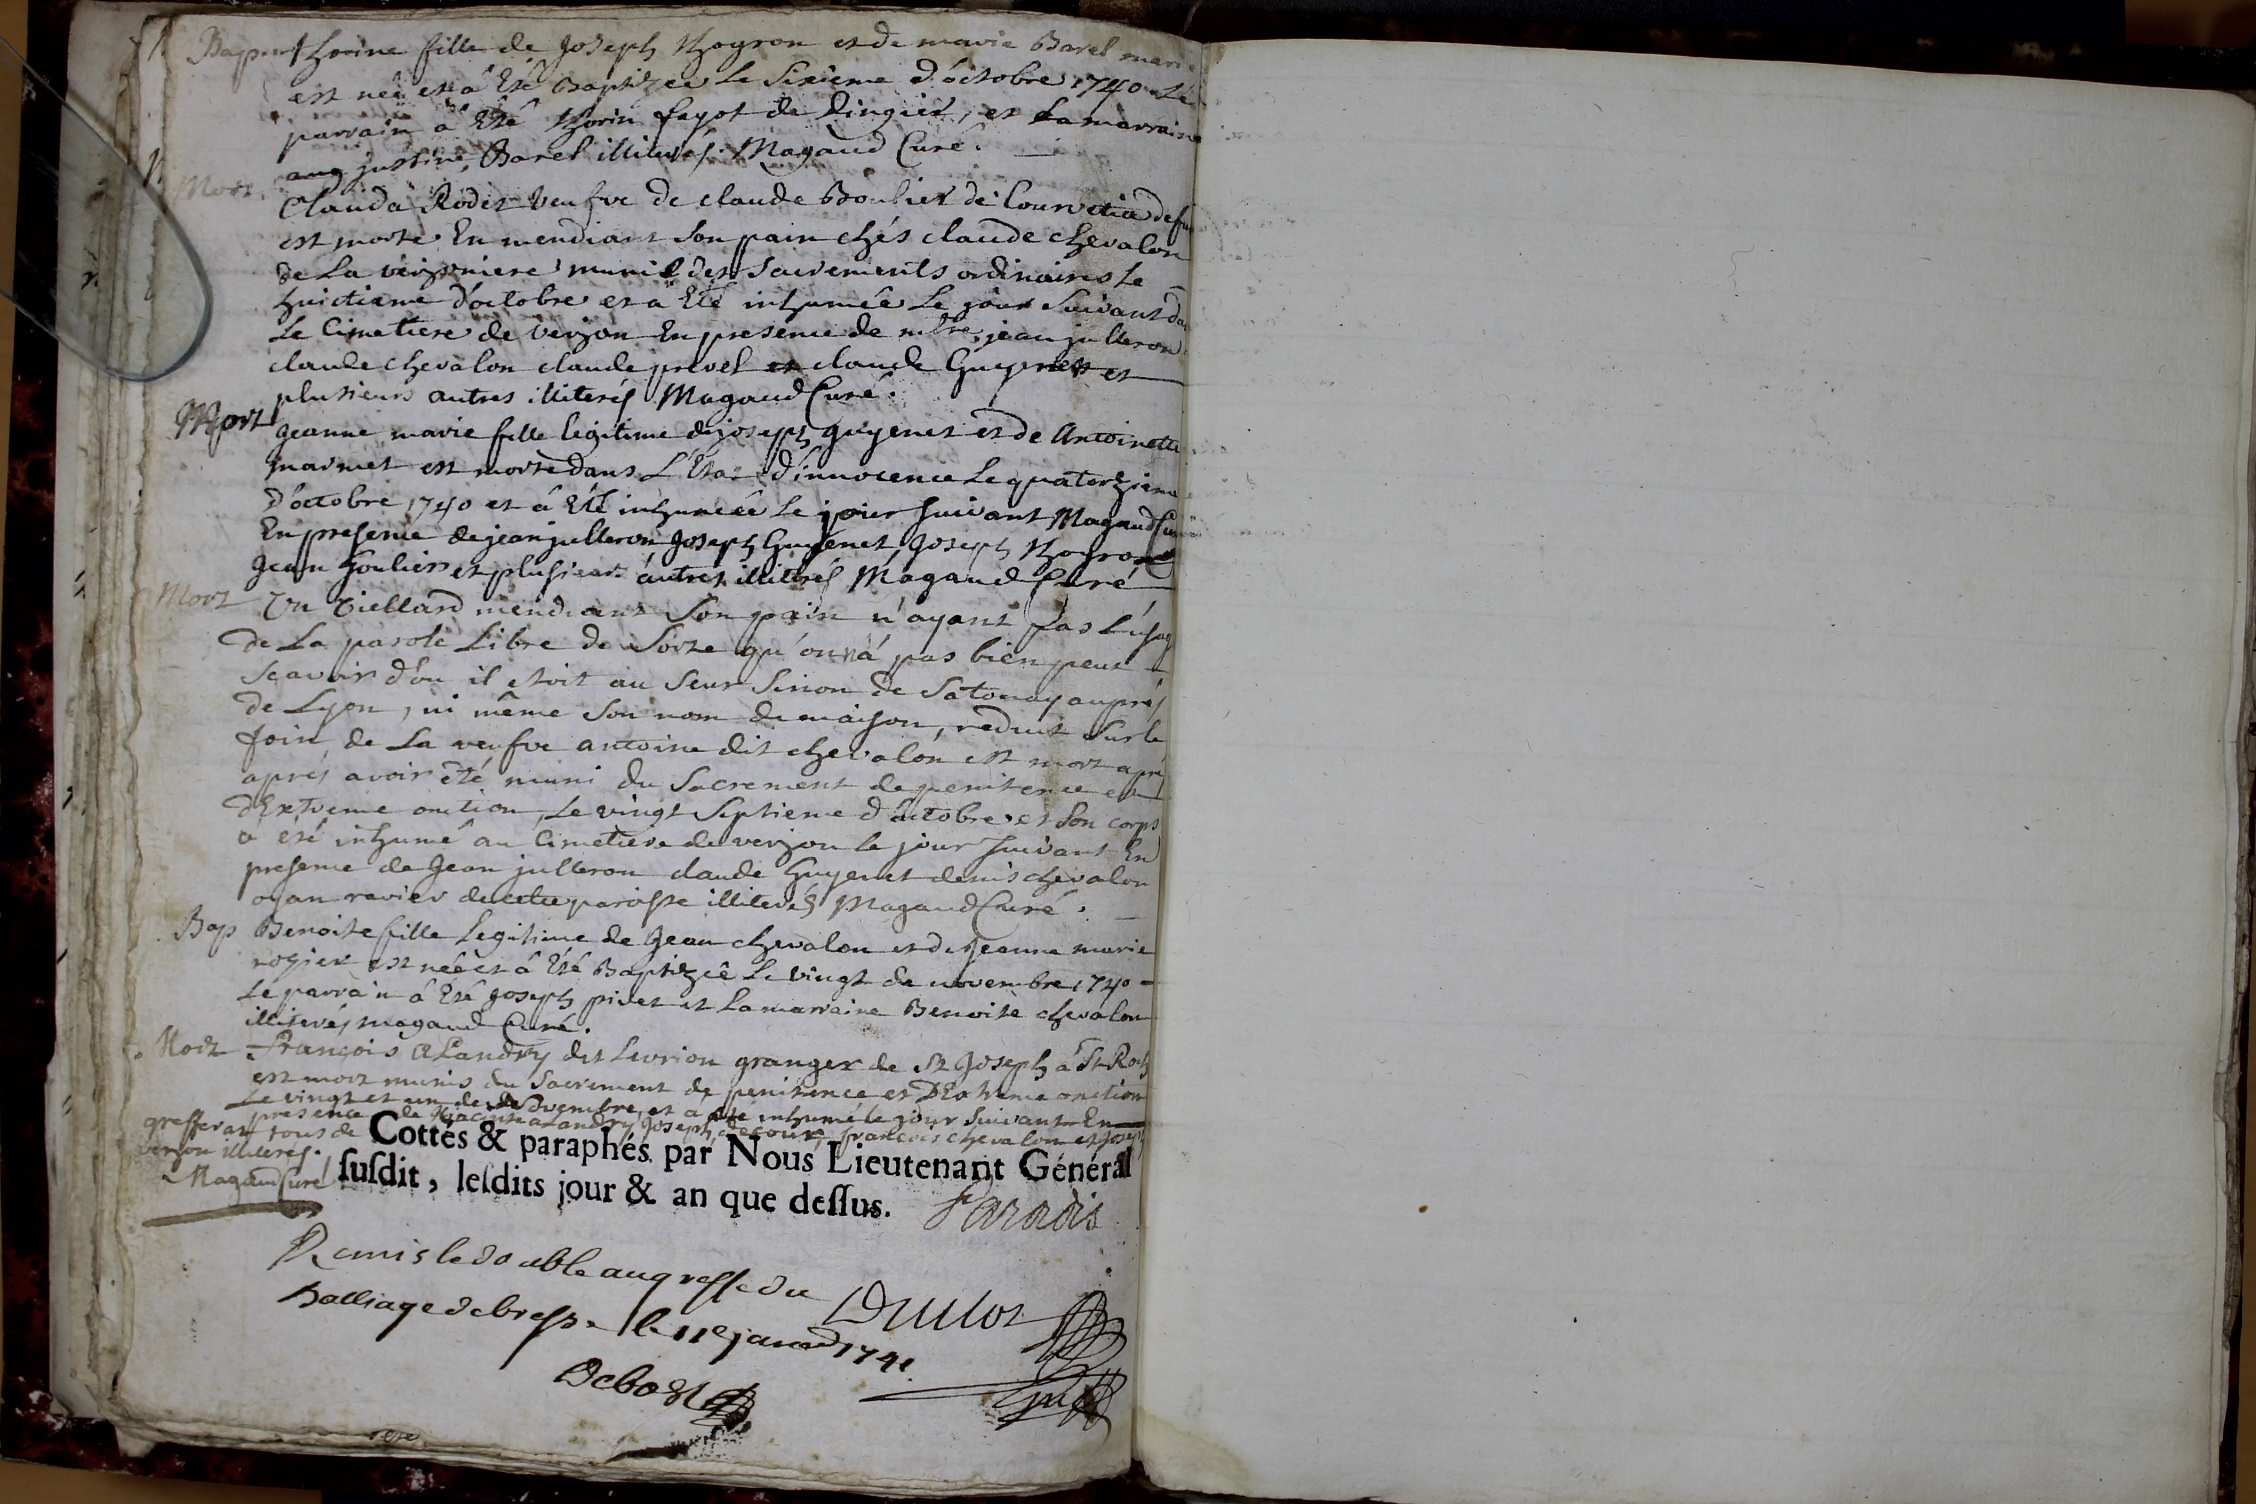 Bap. thorine fille de Joseph thogron et de marie Barel marie
est neé et â Eté Baptizeé le Sixieme d'octobre 1740 Le
parrain â Eté thorin fayot de lingiet, et La marraine
augustine Barel illiterés. Magaud Curé.
Mort
Clauda Rodet veufve de claude Boulier de Courvetia
est morte En mendiant Son pain chés claude chevalon
de La verjoniere munie des Sacrements ordinaires le
huictieme d'octobre et â Eté inhumeé Le jour Suivant
Le Cimetiere de verjon En presence de jean julleron
claude chevalon claude prevel et claude Guyenet et
plusieurs autres illiterés Magaud Curé.
Mort
jeanne marie fille legitime de joseph guyenet et de Antoinette
marmet est morte dans L'Etat d'innocence Le quatorzieme
d'octobre 1740 et â Eté inhumeé le jour suivant Magaud Curé
En presence de jean julleron joseph Guyenet, joseph thogron
jean et plusieurs autres illitrés Magaud Curé
Mort Un viellard mendiant Son pain n'ayant pas l'usage
de La parole Libre de Sorte qu'on n'a pas bien peut
Scavoir d'ou il etoit au Seur Sinon de Satonay auprés
de Lyon, ni même Son nom de maison, reduit Sur le
foin de La veufve antoine dit chevalon est mort
aprés avoir eté muni du Sacrement de penitence et
d'Extreme onction, Le vingt Septieme d'octobre et Son corps
a eté inhumé au Cimetiere de verjon le jour suivant En
presence de Jean julleron claude Guyenet denis chevalon
oyan ravier de cette paroisse illiterés Magaud Curé.
Bap Benoite fille Legitime de Jean chevalon et de jeanne marie
rozier est neé et â Eté Baptizeé Le vingt de novembre 1740
Le parrain â Eté joseph pivet et La marraine Benoite chevalon
illiterés magaud Curé.
Mort François A Landry dit Levrion granger de St Joseph â St Roch
est mort munis du Sacrement de penitence et D'Extreme onction
Le vingt et un de et a eté inhumé le jour Suivant En
presence de Hiacinte a Landry, joseph françois chevalon et joseph
tous de
verjon illiterés.
Magaud Curé
Cottés & paraphés par Nous Lieutenant Général
susdit, lesdits jour & an que dessus.
Paradis
Remis le double au greffe du
Balliage de bresse le 11e janv 1741
Debost